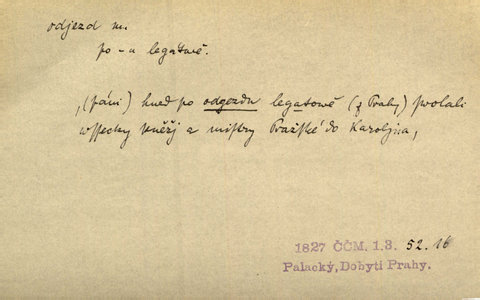 odjezd m.
po -u legátově.
„(páni) hned po odgezdu legatowě (z Prahy) swolali
wssecky kněžj a mistry Pražské do Karoljna„
1827 ČČM. 1.3. 52. 16
Palacký, Dobytí Prahy.